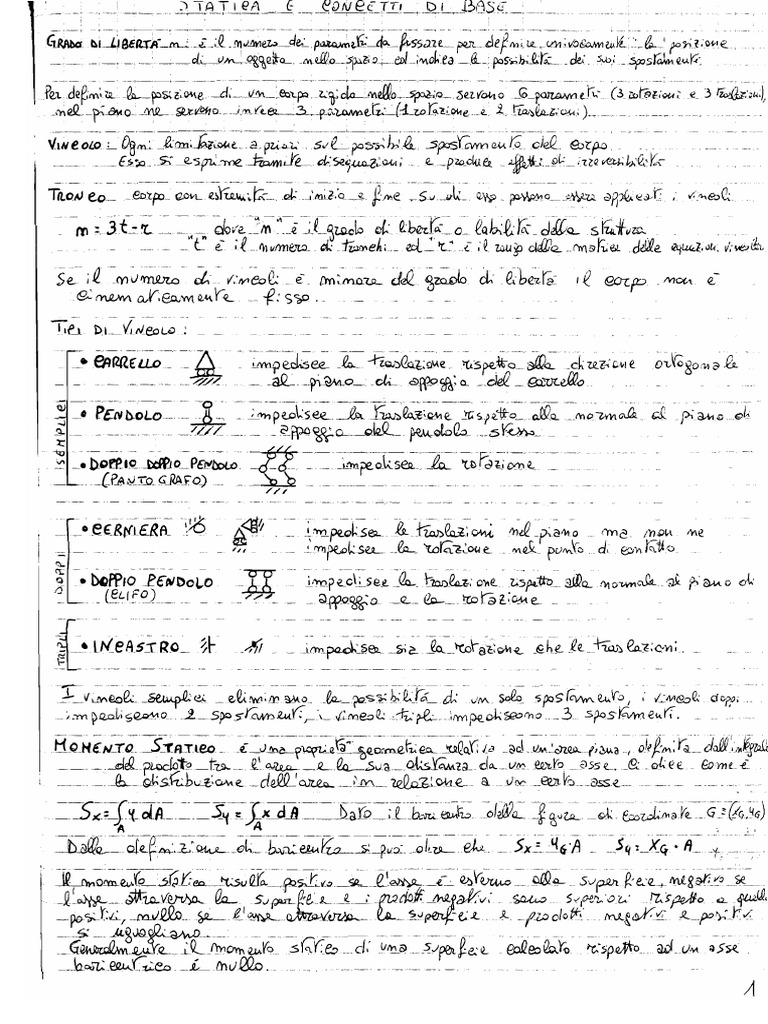 STATICA E CONCETTI DI BASE
GRADO DI LIBERTÀ n: è il numero dei parametri da fissare per definire univocamente la posizione
di un oggetto nello spazio, ed indica le possibilità dei suoi spostamenti.
Per definire la posizione di un corpo rigido nello spazio servono 6 parametri (3 rotazioni e 3 traslazioni),
nel piano ne servono invece 3 parametri (1 rotazione e 2 traslazioni).
VINCOLO: Ogni limitazione a priori sul possibile spostamento del corpo.
Esso si esprime tramite disequazioni e produce effetti di irreversibilità
TRONCO corpo con estremità di inizio e fine. Su di esso possono essere applicati i vincoli
n = 3t - r dove "n" è il grado di libertà o labilità della struttura
"t" è il numero di tronchi ed "r" è il rango della matrice delle equazioni vincolari
Se il numero di vincoli è minore del grado di libertà il corpo non è
cinematicamente fisso.
TIPI DI VINCOLO:
SEMPLICI
• CARRELLO impedisce la traslazione rispetto alla direzione ortogonale
al piano di appoggio del carrello
• PENDOLO impedisce la traslazione rispetto alla normale al piano di
appoggio del pendolo stesso
• DOPPIO DOPPIO PENDOLO impedisce la rotazione
(PANTOGRAFO)
DOPPI
• CERNIERA impedisce le traslazioni nel piano ma non ne
impedisce la rotazione nel punto di contatto
• DOPPIO PENDOLO impedisce la traslazione rispetto alla normale al piano di
(GLIFO) appoggio e la rotazione
TRIPLI
• INCASTRO impedisce sia la rotazione che le traslazioni.
I vincoli semplici eliminano la possibilità di un solo spostamento, i vincoli doppi
impediscono 2 spostamenti, i vincoli tripli impediscono 3 spostamenti.
MOMENTO STATICO è una proprietà geometrica relativa ad un'area piana, definita dall'integrale
del prodotto tra l'area e la sua distanza da un certo asse. Ci dice com'è
la distribuzione dell'area in relazione a un certo asse
Sx = ∫A y dA Sy = ∫A x dA Dato il baricentro della figura di coordinate G = (xG, yG)
Dalla definizione di baricentro si può dire che Sx = yG · A Sy = xG · A
Il momento statico risulta positivo se l'asse è esterno alla superficie, negativo se
l'asse attraversa la superficie e i prodotti negativi sono superiori rispetto a quelli
positivi, nullo se l'asse attraversa la superficie e prodotti negativi e positivi
si uguagliano.
Generalmente il momento statico di una superficie calcolato rispetto ad un asse
baricentrico è nullo.
1